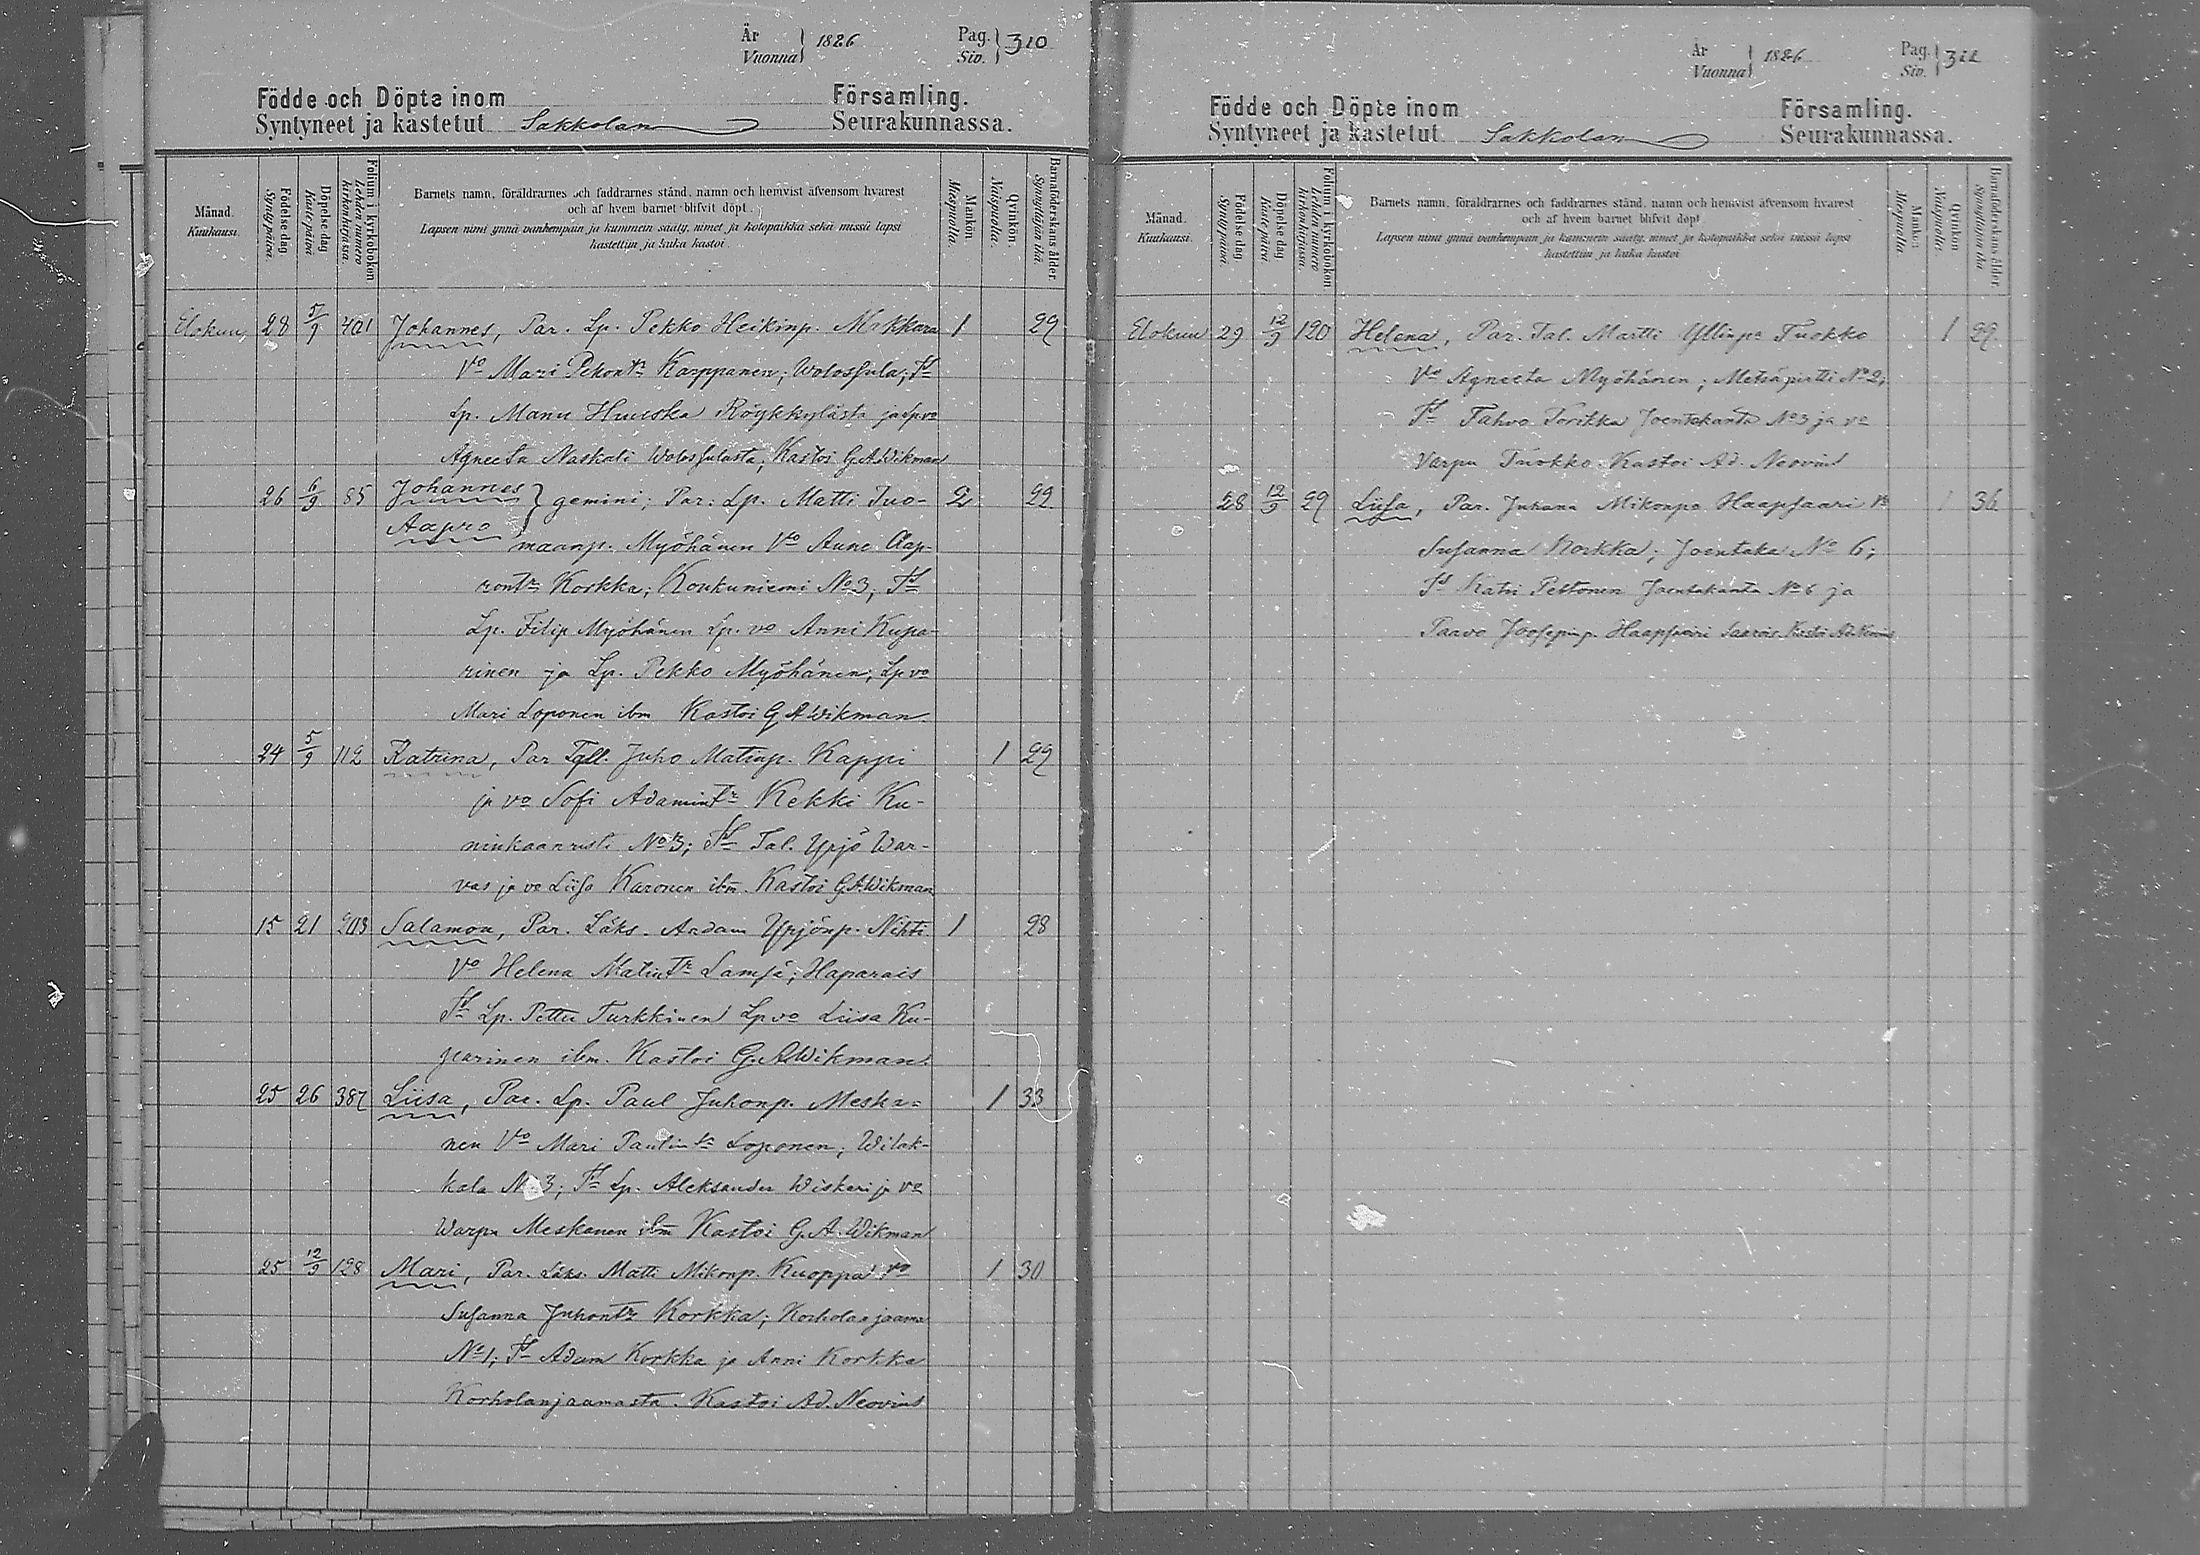 År
Vuonna } 1826 Pag.
Siv. } 310
Födde och Döpta inom Församling.
Syntyneet ja kastetut Sakkolan Seurakunnassa.
Månad. Kuukausi.
Födelse dag Syntypäivä.
Döpelse dag Kastepäivä
Folium i kyrkoboken Lehden numero kirkonkirjassa.
Barnets namn, föräldrarnes och faddrarnes stånd, namn och hemvist äfvensom hvarest
och af hvem barnet blifvit döpt.
Lapsen nimi ynnä vanhempain ja kummein sääty, nimet ja kotopaikka sekä missä lapsi
kastettiin ja kuka kastoi
Mankön Miespuolia.
Qvinkön Naispuolia.
Barnaföderskans ålder. Synnyttäjän ikä.
Elokuu, 28 5/9 401 Johannes, Par. Lp. Pekko Heikinp. Mrkkara 1 29
Vo Mari Pekontr Karppanen; Wolossula; Ts
Lp. Manu Huuska Röykkylästä ja Lp vo
Agneeta Naskali Wolossulasta; Kastoi G.A. Wikman
26 6/9 85 Johannes } gemini; Par: Lp. Matti Tuo- 2 29
Aapro
maanp. Myöhänen Vo Anne Aap-
rontr Korkka; Koukuniemi No 3; Ts
Lp. Filip Myöhänen Lp. vo Anni Kupa-
rinen ja Lp. Pekko Myöhänen; Lp vo
Mari Loponen ibm Kastoi G A Wikman
24 5/9 112 Katrina, Par Tall. Juho Matinp. Kappi 1 29
ja vo Sofi Adamintr Kekki Ku-
ninkaanristi No 3; Ts Tal. Yrjö War-
vas ja vo Liisa Karonen ibm. Kastoi G.A. Wikman
15 21 203 Salamon, Par. Läks. Aadam Yrjönp. Nihti 1 28
Vo Helena Matintr Lamsä; Haparais
Ts Lp. Pettu Turkkinen Lp vo Liisa Ku-
parinen ibm. Kastoi G. A Wikman.
25 26 387 Liisa, Par. Lp. Paul Juhonp. Meska- 1 33
nen Vo Mari Paulintr Loponen; Wilak-
kala No 3; Ts Lp. Aleksander Wiskari ja vo
Warpu Meskanen ibm Kastoi G. A. Wikman
25 12/9 128 Mari, Par. Läks. Matti Mikonp. Kuoppa vo 1 30
Susanna Juhontr Korkka; Korholanjaama
No 1; Ts Adam Korkka ja Anni Korkka
Korholanjaamasta. Kastoi Ad. Neovius
År
Vuonna } 1826 Pag.
Siv. } 311
Födde och Döpte inom Församling.
Syntyneet ja kastetut Sakkolan Seurakunnassa.
Månad. Kuukausi.
Födelse dag Syntypäivä.
Döpelse dag Kastepäivä.
Folium i kyrkoboken Lehden numero kirkonkirjassa.
Barnets namn, föräldrarnes och faddrarnes stånd, namn och hemvist äfvensom hvarest
och af hvem barnet blifvit döpt
Lapsen nimi ynnä vanhempain ja kummein sääty, nimet ja kotopaikka sekä missä lapsi
kastettiin ja kuka kastoi
Mankön Miespuolia.
Qvinkön Naispuolia.
Barnaföderskans ålder Synnyttäjän ikä
Elokuu 29 12/9 120 Helena, Par. Tal. Martti Yllinp. Tuokko 1 29
Vo Agneeta Myöhänen; Metsäpirtti No 2;
Ts Tahvo Torikka Joentakanta No 3 ja vo
Varpu Tuokko. Kastoi Ad. Neovius
28 12/9 29 Liisa, Par. Juhana Mikonpo Haapsaari vo 1 36
Susanna Korkka; Joentaka No 6;
Ts Katri Peltonen Joentakanta No 6 ja
Paavo Joosepinp. Haapsaari Kastoi